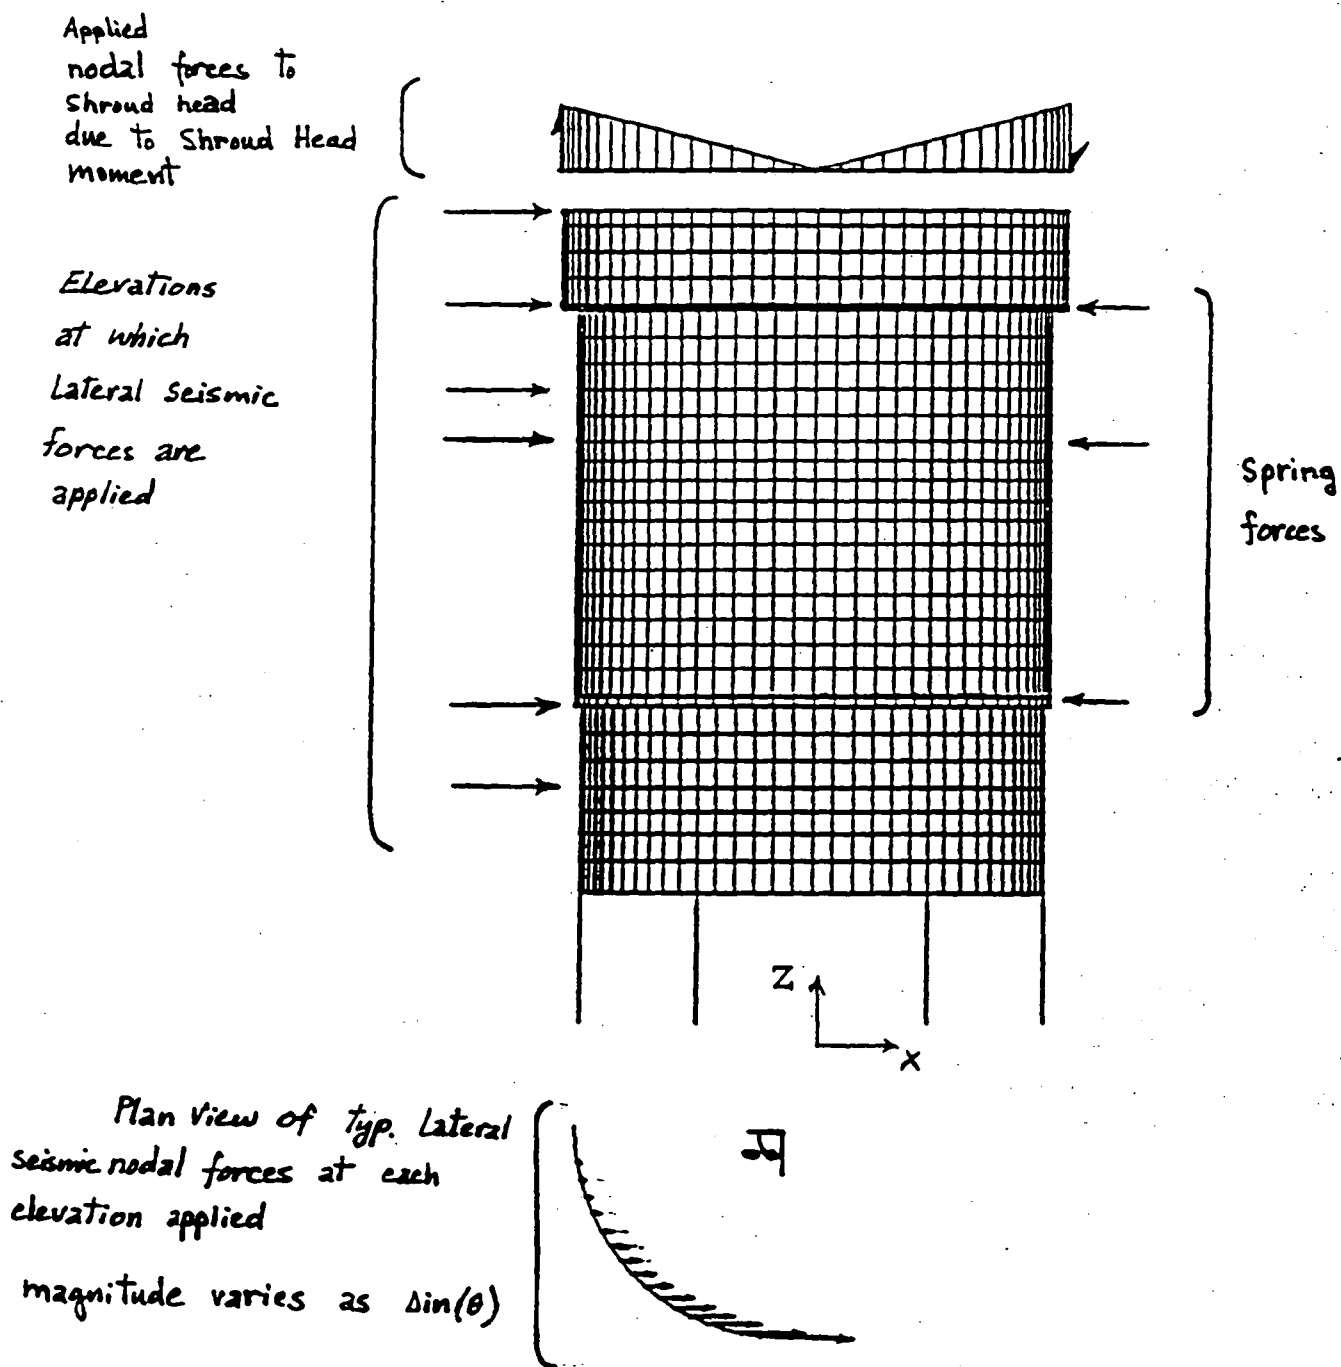 Applied
nodal forces to
Shroud head
due to Shroud Head
moment
Elevations
at which
Lateral seismic
forces are
applied
Spring
forces
Z
X
Plan View of Typ. Lateral
seismic nodal forces at each
elevation applied
magnitude varies as sin(θ)